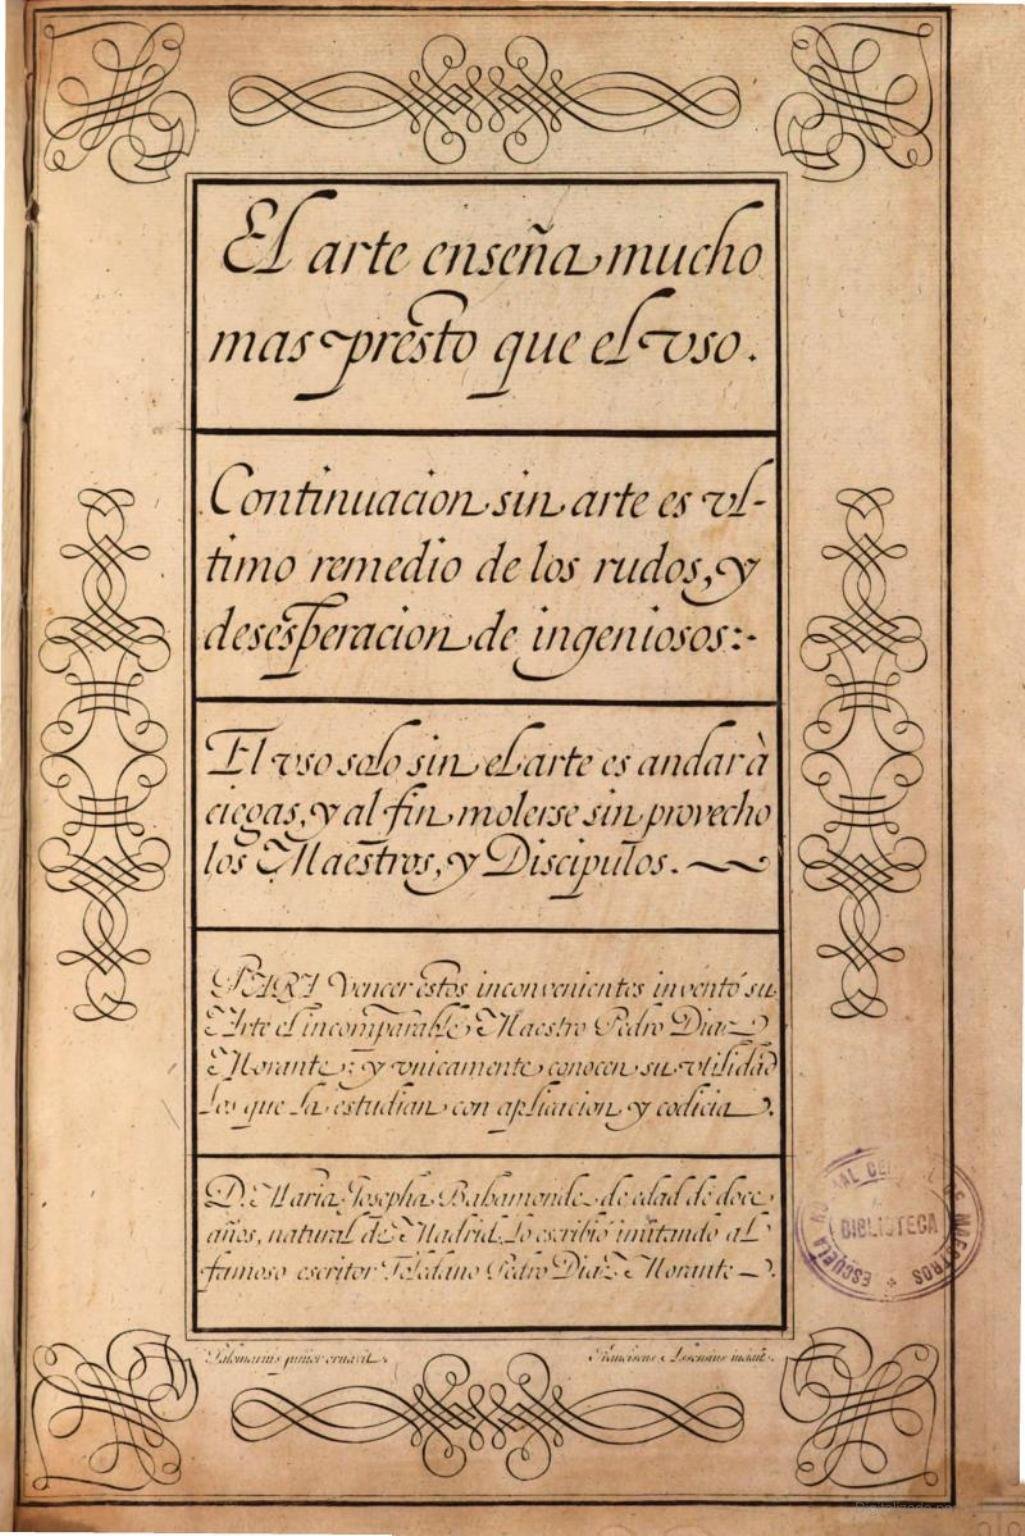 El arte enseña mucho
mas presto que el vso.
Continuacion sin arte es vl-
timo remedio de los rudos, y
desesperacion de ingeniosos:-
El vso solo sin el arte es andar à
ciegas, y al fin molerse sin provecho
los Maestros, y Discipulos.
PARA vencer estos inconvenientes inventó su
Arte el incomparable Maestro Pedro Diaz
Morante: y vnicamente conocen su vtilidad
los que la estudian con aplicacion y codicia.
D. Maria Josepha Bahamonde de edad de doce
años, natural de Madrid lo escribió imitando al
famoso escritor Toledano Pedro Diaz Morante.
Palomarius junior ornavit.
Franciscus Assensius incidit.
BIBLIOTECA
ESCUELA
MAESTROS
Digitalizado por